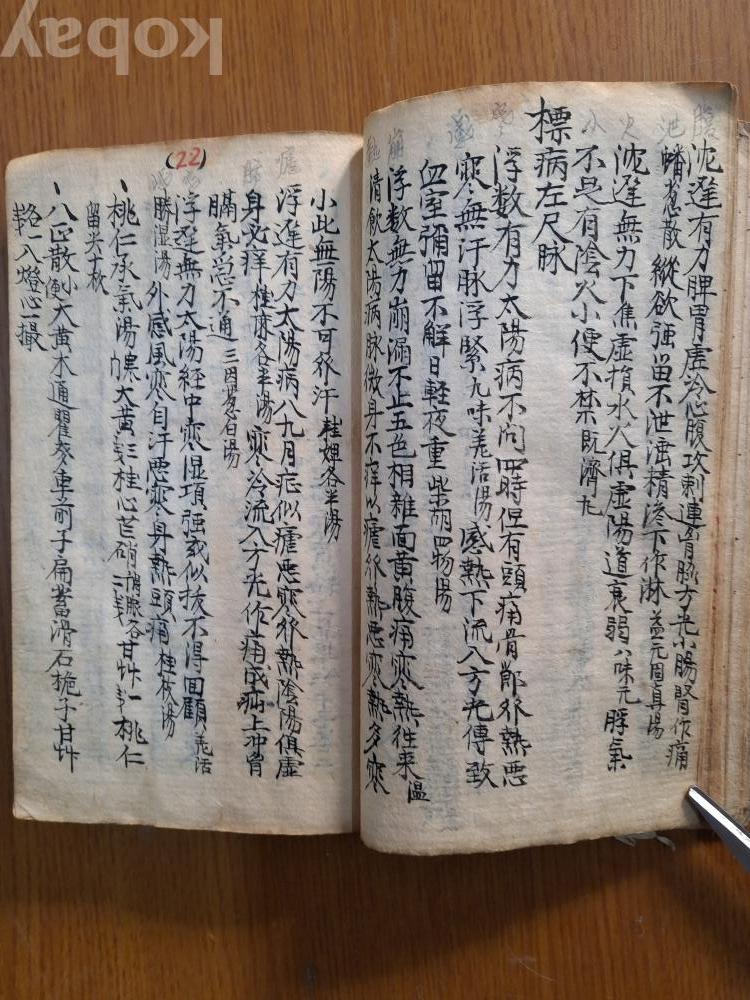 沈遲有力脾胃虛冷心腹攻刺連脅肋方光小腸腎作痛
蟠葱散 縱欲强留不泄淫精滲下作淋 益元固真湯
沈遲無力下焦虛損水火俱虛陽道衰弱 八味元 脬氣
不足有陰火小便不禁 既濟丸
標病左尺脉
浮数有力太陽病不問四時但有頭痛骨節發熱惡
寒無汗脉浮緊 九味羌活湯 感熱下流入方光傳致
血室彌留不解日輕夜重 柴胡四物湯
浮数無力崩漏不止五色相雜面黃腹痛寒熱徃來 温
清飮 太陽病脉微身不痒似瘧發熱惡寒熱多寒
小此無陽不可發汗 桂婢各半湯
浮遲有力太陽病八九月症似瘧惡寒發熱陰陽俱虛
身必痒 桂麻各半湯 寒冷流入方光作痛或疝上冲胷
膈氣急不通 三因葱白湯
浮遲無力太陽經中寒湿項强或似拔不得回顧 羌活
勝湿湯 外感風寒自汗惡寒身熱頭痛 桂枝湯
丶桃仁承氣湯 大黃三戔桂心芒硝 各二戔甘艸一戔桃仁
留尖十枚
丶八正散 大黃木通瞿麥車前子扁蓄滑石梔子甘艸
各一入燈心一撮
(22)
kobay